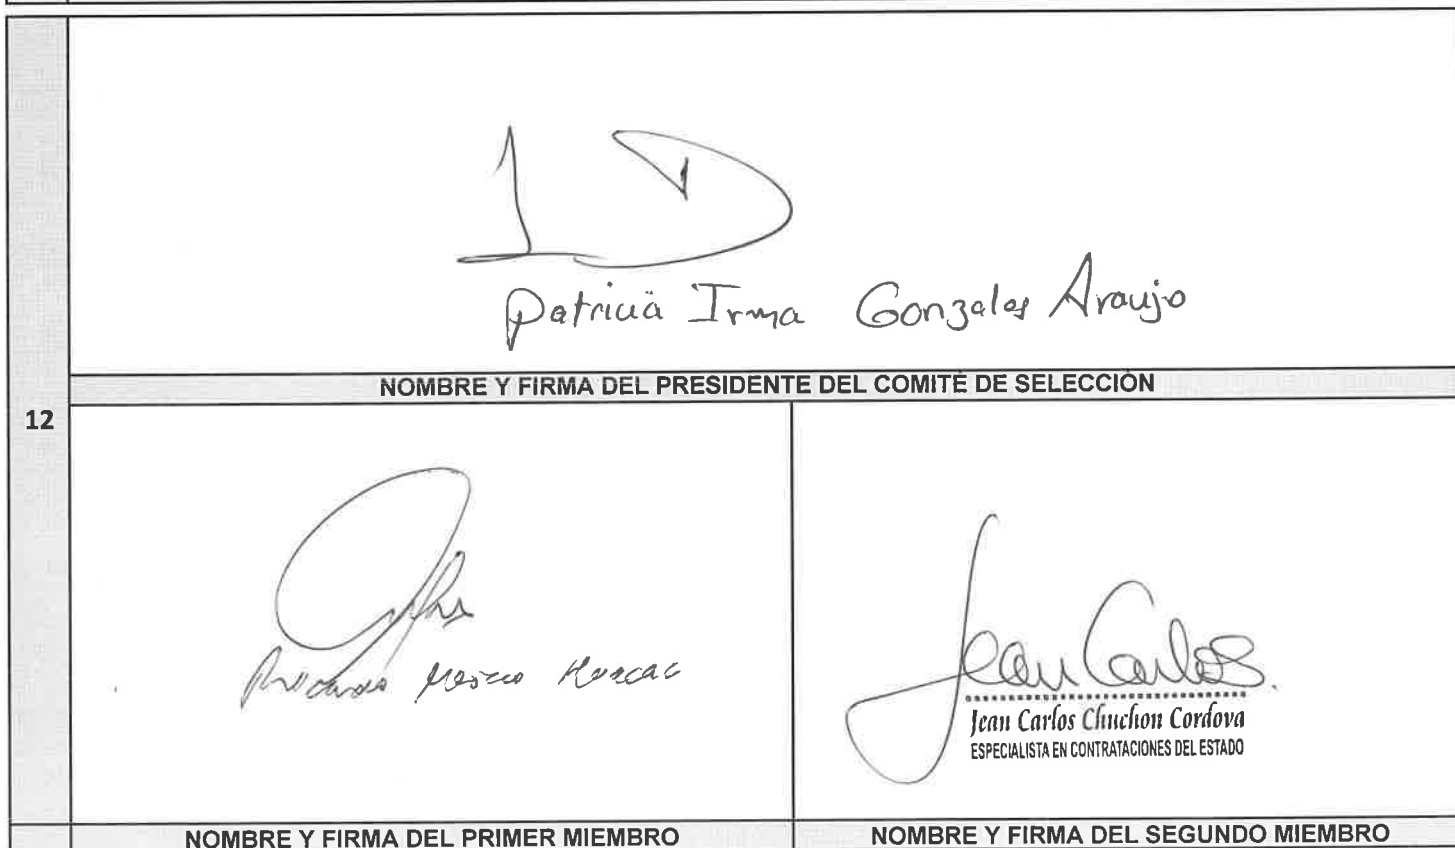 Patricia Irma Gonzales Araujo
NOMBRE Y FIRMA DEL PRESIDENTE DEL COMITÉ DE SELECCIÓN
12
Jean Carlos
Jean Carlos Chuchon Cordova
ESPECIALISTA EN CONTRATACIONES DEL ESTADO
NOMBRE Y FIRMA DEL PRIMER MIEMBRO
NOMBRE Y FIRMA DEL SEGUNDO MIEMBRO